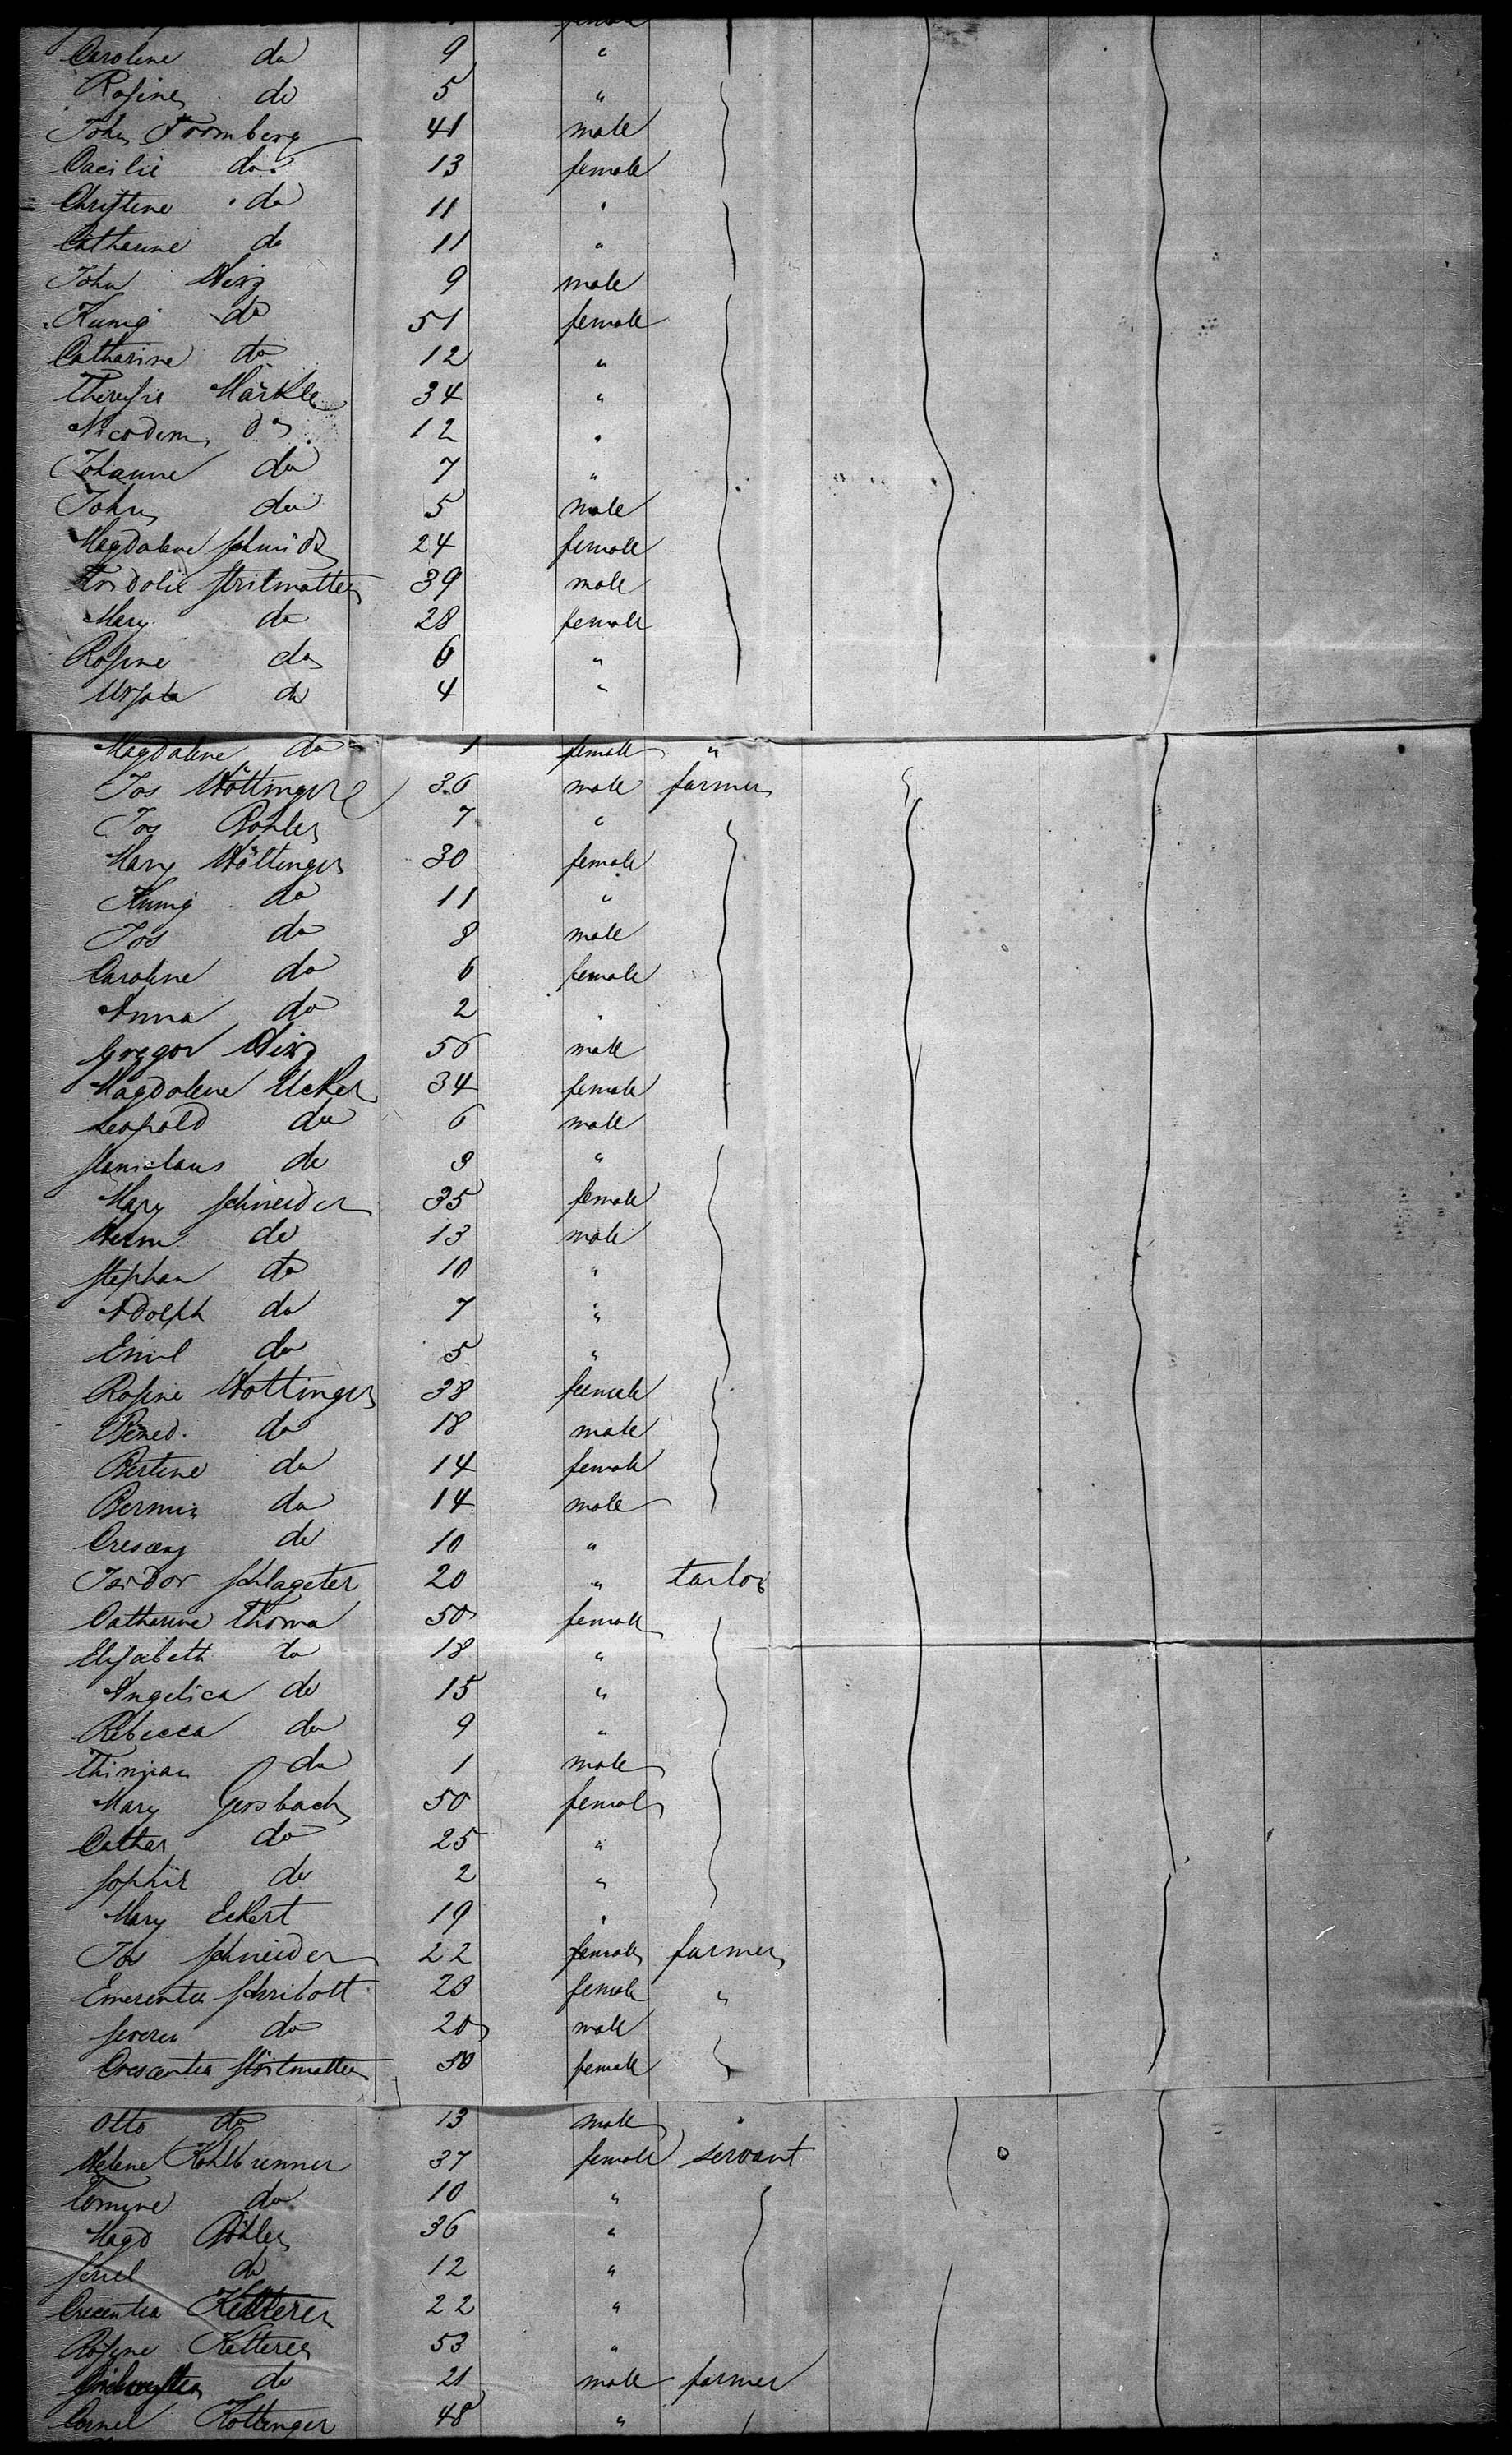 female
Caroline do 9 "
Rosine do 5 "
John Fromberg 41 male
Cacilie do 13 female
Christine do 11 "
Catharine do 11 "
John 9 male
Kunig do 51 female
Catharine do 12 "
Theresia Märkle 34 "
Nicodem do 12 "
Johanne do 7 "
John do 5 male
Magdalene Schmidt 24 female
Fridolie Stritmatter 39 male
Mary do 28 female
Rosine do 6 "
Ursola do 4 "
Magdalene do 1 female "
Jos Wöttinger 36 male farmer
Jos Bohler 7 "
Mary Wöttinger 30 female
Kunig do 11 "
Jos do 8 male
Caroline do 6 female
Anna do 2 "
Gregor 56 male
Magdalene Ucker 34 female
Leopold do 6 male
Stanislaus do 3 "
Mary Schneider 35 female
Herm do 13 male
Stephan do 10 "
Adolph do 7 "
Emil do 5 "
Rosine Wottinger 38 female
Bened. do 18 male
Bertine do 14 female
Bermin do 14 male
Cresceng do 10 "
Isidor Schlageter 20 " tailor
Catharine Thoma 50 female
Elisabeth do 18 "
Angelica do 15 "
Rebecca do 9 "
do 1 male
Mary Gersbach 50 female
Cathar do 25 "
Sophie do 2 "
Mary Eckert 19 "
Jos Schneider 22 female farmer
Emerentia Schribott 23 female "
Severin do 20 male
Crescentia Stritmatter 50 female
Otto do 13 male "
Helene Kohlbrenner 37 female servant
do 10 "
Magd Böhler 36 "
do 12 "
Crecentia Ketterer 22 "
Rosine Ketterer 53 "
do 21 male farmer
Cornel Kottinger 48 "